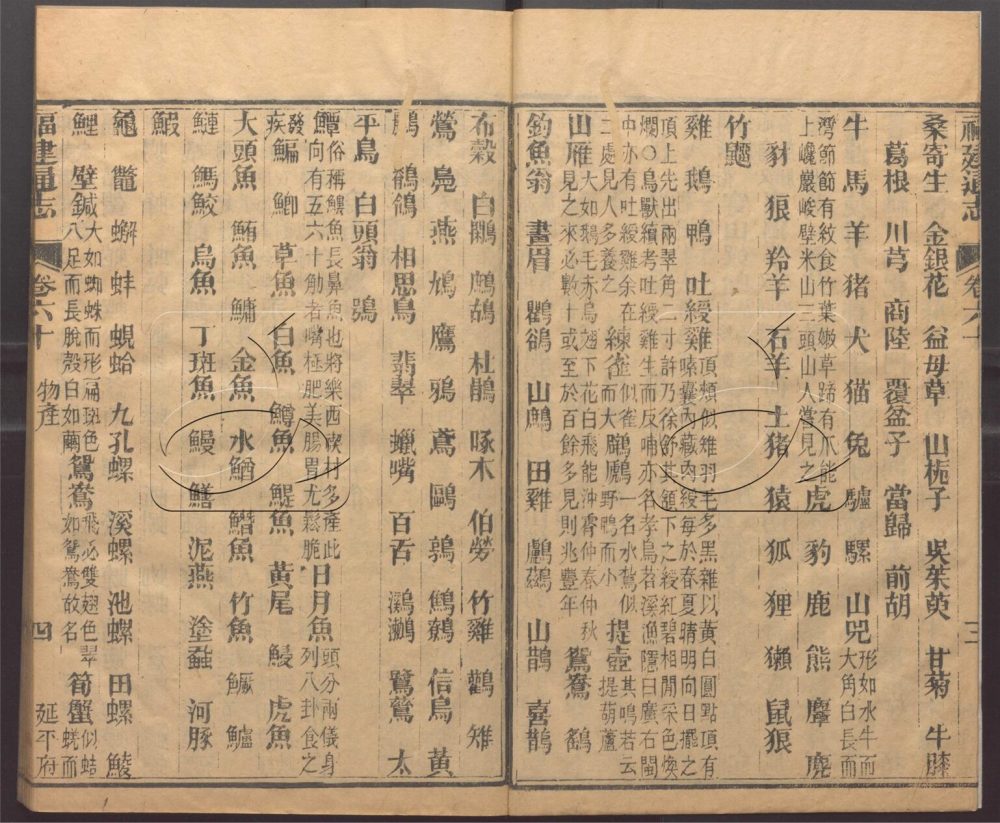 福建通志 卷六十 三
桑寄生 金銀花 益母草 山梔子 吳茱萸 甘菊 牛膝
葛根 川芎 商陸 覆盆子 當歸 前胡
牛 馬 羊 猪 犬 猫 兔 驢 騾 山兕形如水牛而大角白長而
灣節節有紋食竹葉嫩草蹄有爪能上巉巖峻壁米山三頭山人嘗見之 虎 豹 鹿 熊 麞 麂
豺 狼 羚羊 石羊 土猪 猿 狐 狸 獺 鼠狼
竹䶉
雞 鵝 鴨 吐綬雞頂頰似雉羽毛多黑雜以黃白圓點頂有嗉囊內藏肉綬每於春夏晴明向日擺之
頂上先出兩翠角二寸許乃徐舒其頷下之綬紅碧相間采色煥爛〇鳥獸續考吐綬雞生而反哺亦名孝鳥苕溪漁隱曰廣右閩
中亦有吐綬雞余在二處見人多養之 練雀似雀而大 鸊鷉一名水鶩似野鴨而小 提壺其鳴若云提葫蘆
山雁大如鵝毛赤烏翅下花白飛能沖霄仲春仲秋見之來必數十或至於百餘多見則兆豐年 鴛鴦 鶴
釣魚翁 畫眉 鸜鵒 山鷓 田雞 鸕鷀 山鵲 喜鵲
布穀 白鷴 鷓鴣 杜鵑 啄木 伯勞 竹雞 鸛 雉
鶯 鳧 燕 鳩 鷹 鴉 鳶 鷗 鶉 鷦鷯 信鳥 黃
鵬 鶺鴒 相思鳥 翡翠 蠟嘴 百舌 鸂鷘 鷺鶿 太
平鳥 白頭翁 鴞
鱏俗稱鱘魚長鼻魚也將樂西禊村多產此向有五六十觔者嘴極肥美腸胃尤鬆脆 日月魚頭分兩儀身列八卦食之
發疾 鯿 鯽 草魚 白魚 鱒魚 鯷魚 黃尾 鰻 虎魚
大頭魚 鮪魚 鱅 金魚 水䲡 鰌魚 竹魚 鱖 鱸
鰱 鰢鮫 烏魚 丁斑魚 鰻 鱔 泥燕 塗蝨 河豚
鰕
龜 鼈 蠏 蚌 蜆蛤 九孔螺 溪螺 池螺 田螺 鯪
鯉 壁鋮大如蜘蛛而形扁斑色八足而長脫殼白如繭 鴛鴦飛必雙翅色翠如鴛鴦故名 筍蟹似蛣蜣而
福建通志 卷六十 物產 四 延平府